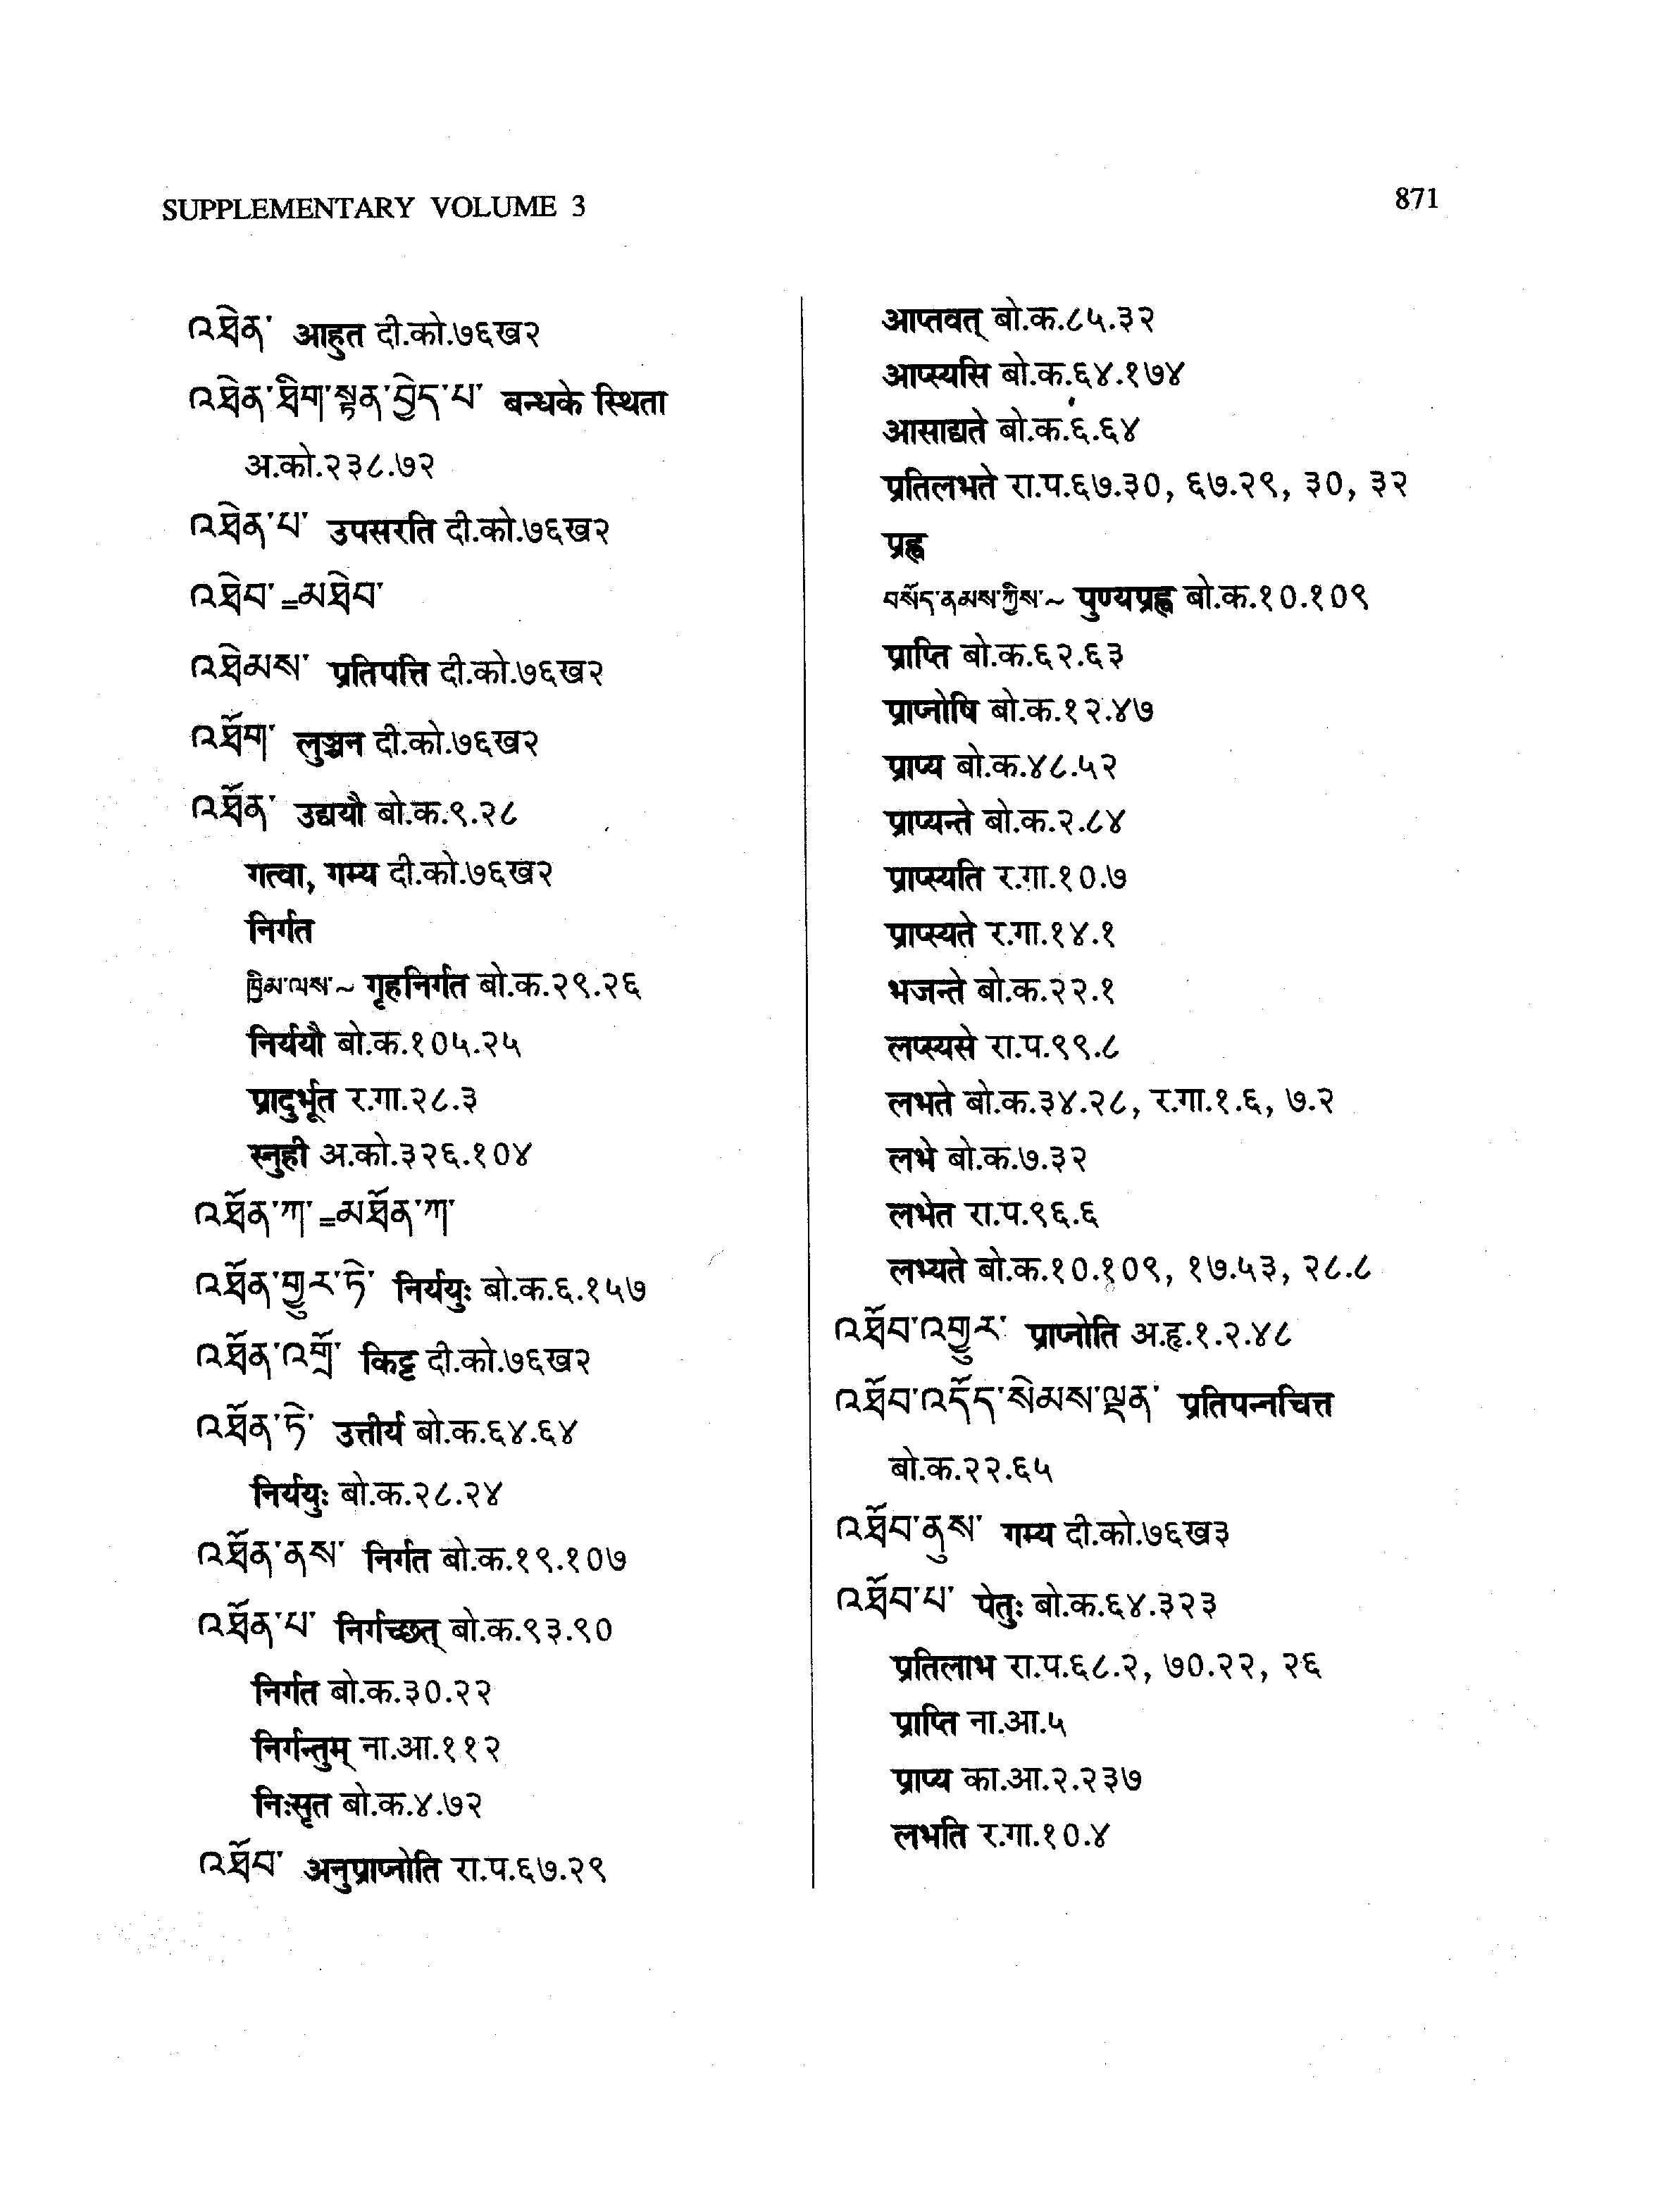 SUPPLEMENTARY VOLUME 3
871
འཐེན་ आहुत दी.को.७६ख२
འཐེན་ཐིག་སྟན་བྱེད་པ་ बन्धके स्थिता
अ.को.२३८.७२
འཐེན་པ་ उपसरति दी.को.७६ख२
འཐེབ་=མཐེབ་
འཐེམས་ प्रतिपत्ति दी.को.७६ख२
འཐོག་ लुञ्चन दी.को.७६ख२
འཐོན་ उद्ययौ बो.क.९.२८
गत्वा, गम्य दी.को.७६ख२
निर्गत
ཁྱིམ་ལས་~ गृहनिर्गत बो.क.२९.२६
निर्ययौ बो.क.१०५.२५
प्रादुर्भूत र.गा.२८.३
स्नुही अ.को.३२६.१०४
འཐོན་ཀ་=མཐོན་ཀ་
འཐོན་གྱུར་ཏེ་ निर्ययुः बो.क.६.१५७
འཐོན་འགྲོ་ किट्ट दी.को.७६ख२
འཐོན་ཏེ་ उत्तीर्य बो.क.६४.६४
निर्ययुः बो.क.२८.२४
འཐོན་ནས་ निर्गत बो.क.१९.१०७
འཐོན་པ་ निर्गच्छत् बो.क.९३.९०
निर्गत बो.क.३०.२२
निर्गन्तुम् ना.आ.११२
निःसृत बो.क.४.७२
འཐོབ་ अनुप्राप्नोति रा.प.६७.२९
आप्तवत् बो.क.८५.३२
आप्स्यसि बो.क.६४.१७४
आसाद्यते बो.क.६.६४
प्रतिलभते रा.प.६७.३०, ६७.२९, ३०, ३२
प्रह्व
བསོད་ནམས་ཀྱིས་~ पुण्यप्रह्व बो.क.१०.१०९
प्राप्ति बो.क.६२.६३
प्राप्नोषि बो.क.१२.४७
प्राप्य बो.क.४८.५२
प्राप्यन्ते बो.क.२.८४
प्राप्स्यति र.गा.१०.७
प्राप्स्यते र.गा.१४.१
भजन्ते बो.क.२२.१
लप्स्यसे रा.प.९९.८
लभते बो.क.३४.२८, र.गा.१.६, ७.२
लभे बो.क.७.३२
लभेत रा.प.९६.६
लभ्यते बो.क.१०.१०९, १७.५३, २८.८
འཐོབ་འགྱུར་ प्राप्नोति अ.हृ.१.२.४८
འཐོབ་འདོད་སེམས་ལྡན་ प्रतिपन्नचित्त
बो.क.२२.६५
འཐོབ་ནུས་ गम्य दी.को.७६ख३
འཐོབ་པ་ पेतुः बो.क.६४.३२३
प्रतिलाभ रा.प.६८.२, ७०.२२, २६
प्राप्ति ना.आ.५
प्राप्य का.आ.२.२३७
लभति र.गा.१०.४